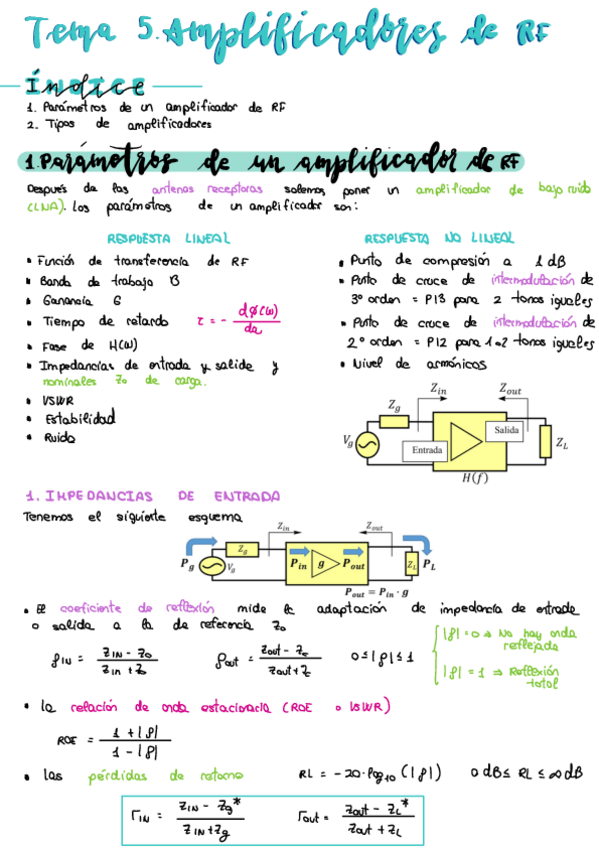 Tema 5. Amplificadores de RF
ÍNDICE
1. Parámetros de un amplificador de RF
2. Tipos de amplificadores
1. Parámetros de un amplificador de RF
Después de las antenas receptoras solemos poner un amplificador de bajo ruido
(LNA). Los parámetros de un amplificador son:
RESPUESTA LINEAL
• Función de transferencia de RF
• Banda de trabajo B
• Ganancia G
• Tiempo de retardo τ = - dφ(ω) / dω
• Fase de H(ω)
• Impedancias de entrada y salida y
nominales Z0 de carga.
• VSWR
• Estabilidad
• Ruido
RESPUESTA NO LINEAL
• Punto de compresión a 1 dB
• Punto de cruce de intermodulación de
3º orden = PI3 para 2 tonos iguales
• Punto de cruce de intermodulación de
2º orden = PI2 para 1 o 2 tonos iguales
• Nivel de armónicos
Zin Zout
Zg
Vg Entrada Salida ZL
H(f)
1. IMPEDANCIAS DE ENTRADA
Tenemos el siguiente esquema
Zin Zout
Zg
Pg Vg Pin g Pout ZL PL
Pout = Pin · g
• El coeficiente de reflexión mide la adaptación de impedancia de entrada
o salida a la de referencia Z0
ρIN = ZIN - Z0 / Zin + Z0 ρout = Zout - Z0 / Zout + Z0 0 ≤ |ρ| ≤ 1
|ρ| = 0 ⇒ No hay onda
reflejada
|ρ| = 1 ⇒ Reflexión
total
• La relación de onda estacionaria (ROE o VSWR)
ROE = 1 + |ρ| / 1 - |ρ|
• Las pérdidas de retorno RL = -20·log10 (|ρ|) 0 dB ≤ RL ≤ ∞ dB
ΓIN = ZIN - Zg* / ZIN + Zg Γout = Zout - ZL* / Zout + ZL